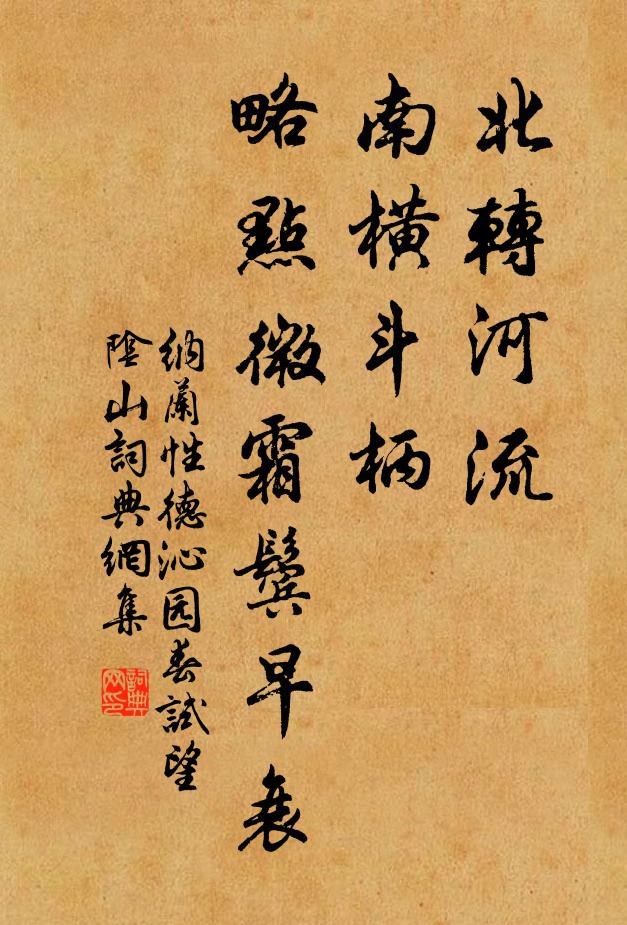 北轉河流
南橫斗柄
略點微霜鬢早衰
納蘭性德沁园春試望
陰山詞典網集
詞典
网印